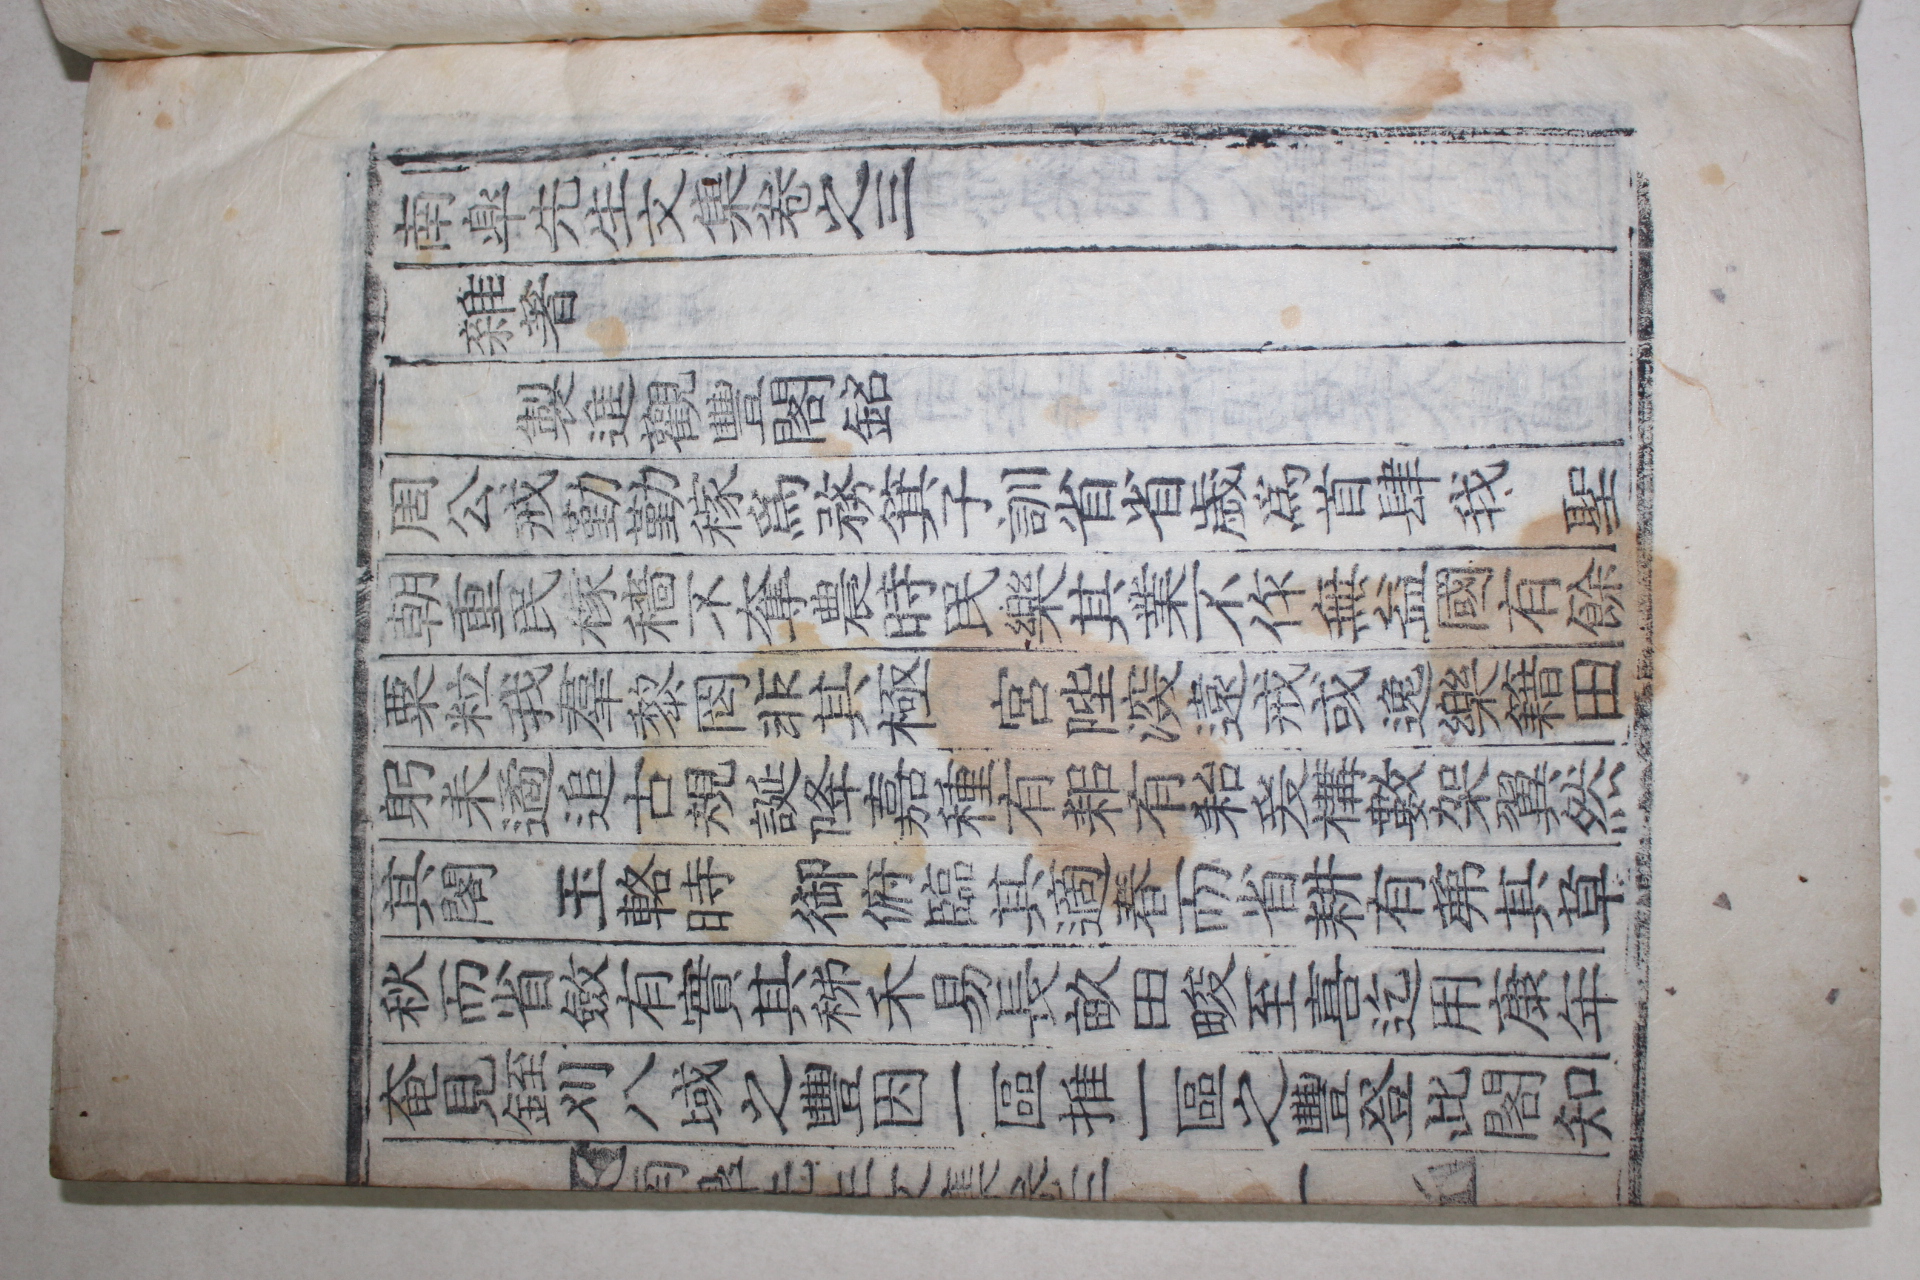 南皐先生文集卷之三
雜著
製進觀豐閣銘
周公戒勤勤稼爲務箕子訓省省歲爲首肆我 聖
朝重民稼穡不奪農時民樂其業不作無益國有餘
粟粒我羣黎罔非其極 宮陛深遠戒或逸樂籍田
躬耒遹追古規誕降嘉種有耜有耛爰構數架翼然
其閣 玉輅時 御俯臨其適春而省耕有茀其草
秋而省斂有實其稊禾易長畝田畯至喜迄用康年
奄見銍刈八域之豐因一區推一區之豐登此閣知
南皐先生文集卷三 一